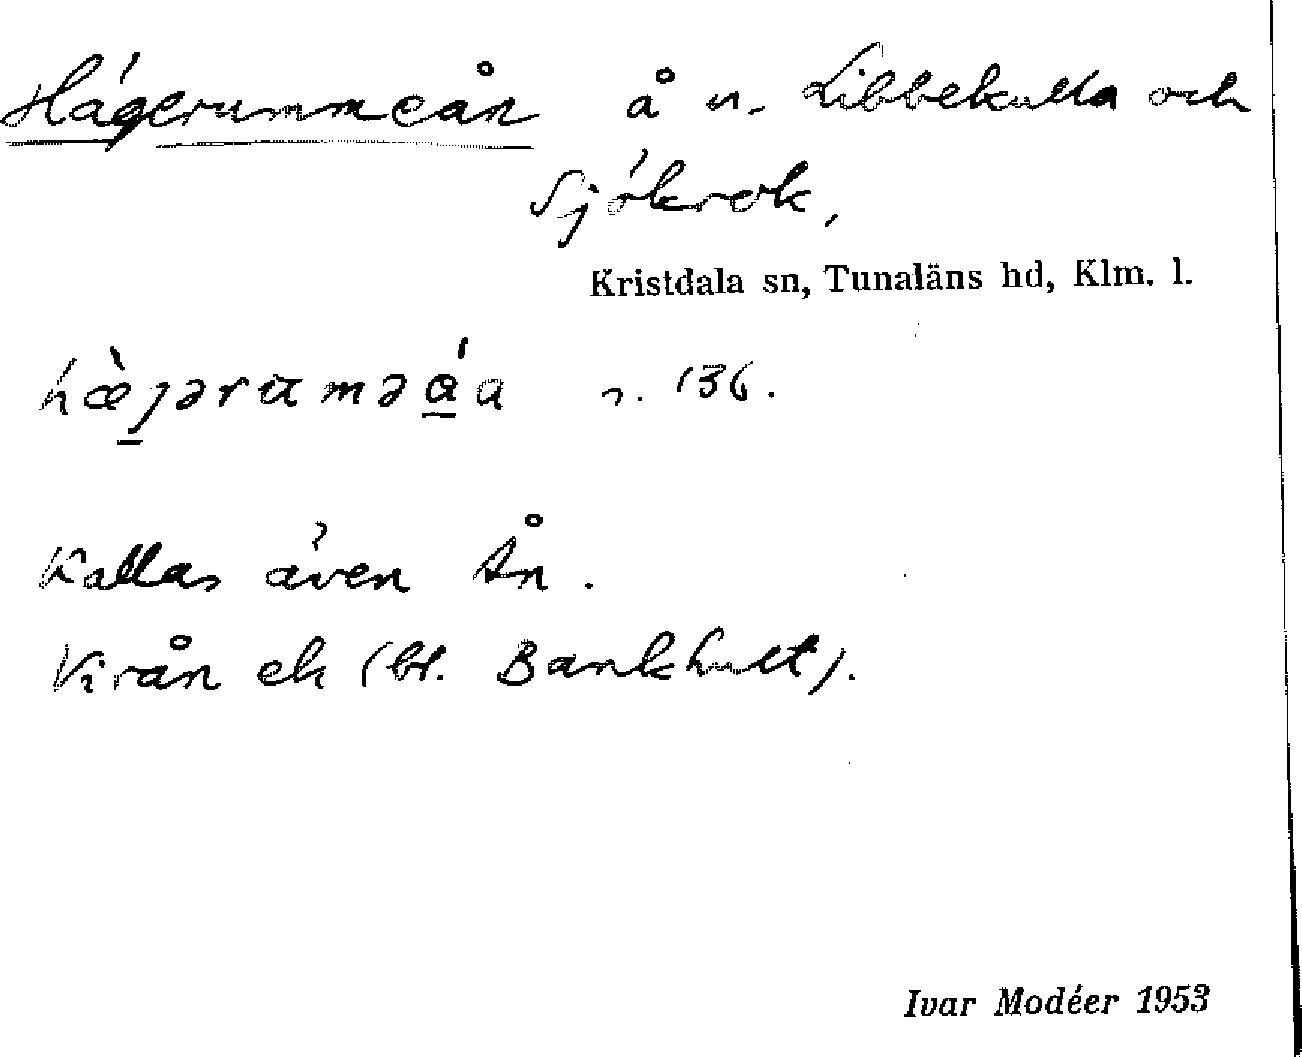 Hägerummeån å n. Libbekulla och
Sjökrok,
Kristdala sn, Tunaläns hd, Klm. l.
hæ̀ȷəruməáa r. 136.
Kallas även Ån.
Virån ek (bl. Bankhult).
Ivar Modéer 1953